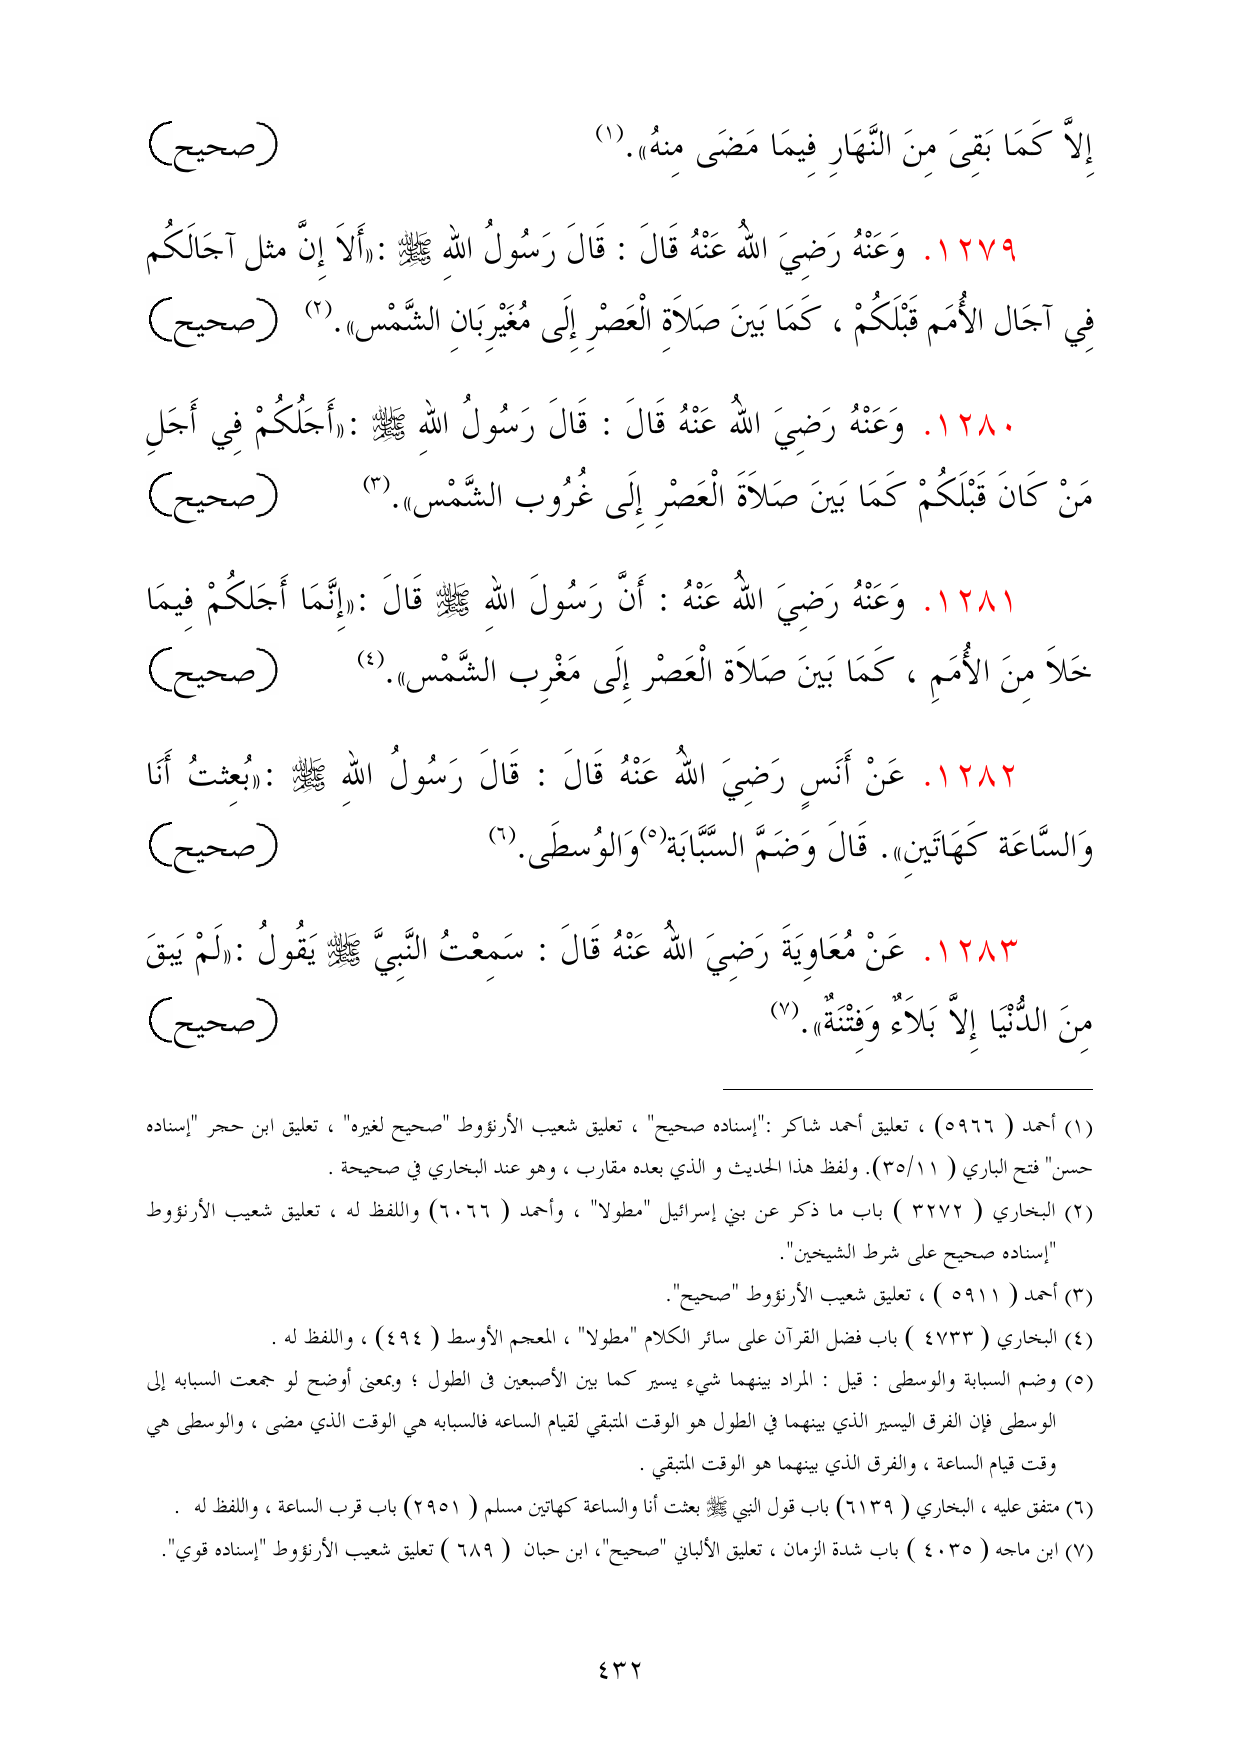 إِلاَّ كَمَا بَقِىَ مِنَ النَّهَارِ فِيمَا مَضَى مِنهُ».(١) (صحيح)
١٢٧٩. وَعَنْهُ رَضِيَ اللهُ عَنْهُ قَالَ : قَالَ رَسُولُ اللهِ ﷺ :«أَلاَ إِنَّ مثل آجَالَكُم
فِي آجَال الأُمَم قَبْلَكُمْ ، كَمَا بَينَ صَلاَةِ الْعَصْرِ إِلَى مُغَيْرِبَانِ الشَّمْس».(٢) (صحيح)
١٢٨٠. وَعَنْهُ رَضِيَ اللهُ عَنْهُ قَالَ : قَالَ رَسُولُ اللهِ ﷺ :«أَجَلُكُمْ فِي أَجَلِ
مَنْ كَانَ قَبْلَكُمْ كَمَا بَينَ صَلاَةَ الْعَصْرِ إِلَى غُرُوب الشَّمْس».(٣) (صحيح)
١٢٨١. وَعَنْهُ رَضِيَ اللهُ عَنْهُ : أَنَّ رَسُولَ اللهِ ﷺ قَالَ :«إِنَّمَا أَجَلكُمْ فِيمَا
خَلاَ مِنَ الأُمَمِ ، كَمَا بَينَ صَلاَة الْعَصْر إِلَى مَغْرِب الشَّمْس».(٤) (صحيح)
١٢٨٢. عَنْ أَنَسٍ رَضِيَ اللهُ عَنْهُ قَالَ : قَالَ رَسُولُ اللهِ ﷺ :«بُعِثتُ أَنَا
وَالسَّاعَة كَهَاتَينِ». قَالَ وَضَمَّ السَّبَّابَة(٥)وَالوُسطَى.(٦) (صحيح)
١٢٨٣. عَنْ مُعَاوِيَةَ رَضِيَ اللهُ عَنْهُ قَالَ : سَمِعْتُ النَّبِيَّ ﷺ يَقُولُ :«لَمْ يَبقَ
مِنَ الدُّنْيَا إِلاَّ بَلاَءٌ وَفِتْنَةٌ».(٧) (صحيح)
(١) أحمد ( ٥٩٦٦) ، تعليق أحمد شاكر :"إسناده صحيح" ، تعليق شعيب الأرنؤوط "صحيح لغيره" ، تعليق ابن حجر "إسناده
حسن" فتح الباري ( ٣٥/١١). ولفظ هذا الحديث و الذي بعده مقارب ، وهو عند البخاري في صحيحة .
(٢) البخاري ( ٣٢٧٢ ) باب ما ذكر عن بني إسرائيل "مطولا" ، وأحمد ( ٦٠٦٦) واللفظ له ، تعليق شعيب الأرنؤوط
"إسناده صحيح على شرط الشيخين".
(٣) أحمد ( ٥٩١١ ) ، تعليق شعيب الأرنؤوط "صحيح".
(٤) البخاري ( ٤٧٣٣ ) باب فضل القرآن على سائر الكلام "مطولا" ، المعجم الأوسط ( ٤٩٤) ، واللفظ له .
(٥) وضم السبابة والوسطى : قيل : المراد بينهما شيء يسير كما بين الأصبعين فى الطول ؛ وبمعنى أوضح لو جمعت السبابه إلى
الوسطى فإن الفرق اليسير الذي بينهما في الطول هو الوقت المتبقي لقيام الساعه فالسبابه هي الوقت الذي مضى ، والوسطى هي
وقت قيام الساعة ، والفرق الذي بينهما هو الوقت المتبقي .
(٦) متفق عليه ، البخاري ( ٦١٣٩) باب قول النبي ﷺ بعثت أنا والساعة كهاتين مسلم ( ٢٩٥١) باب قرب الساعة ، واللفظ له .
(٧) ابن ماجه ( ٤٠٣٥ ) باب شدة الزمان ، تعليق الألباني "صحيح"، ابن حبان ( ٦٨٩ ) تعليق شعيب الأرنؤوط "إسناده قوي".
٤٣٢